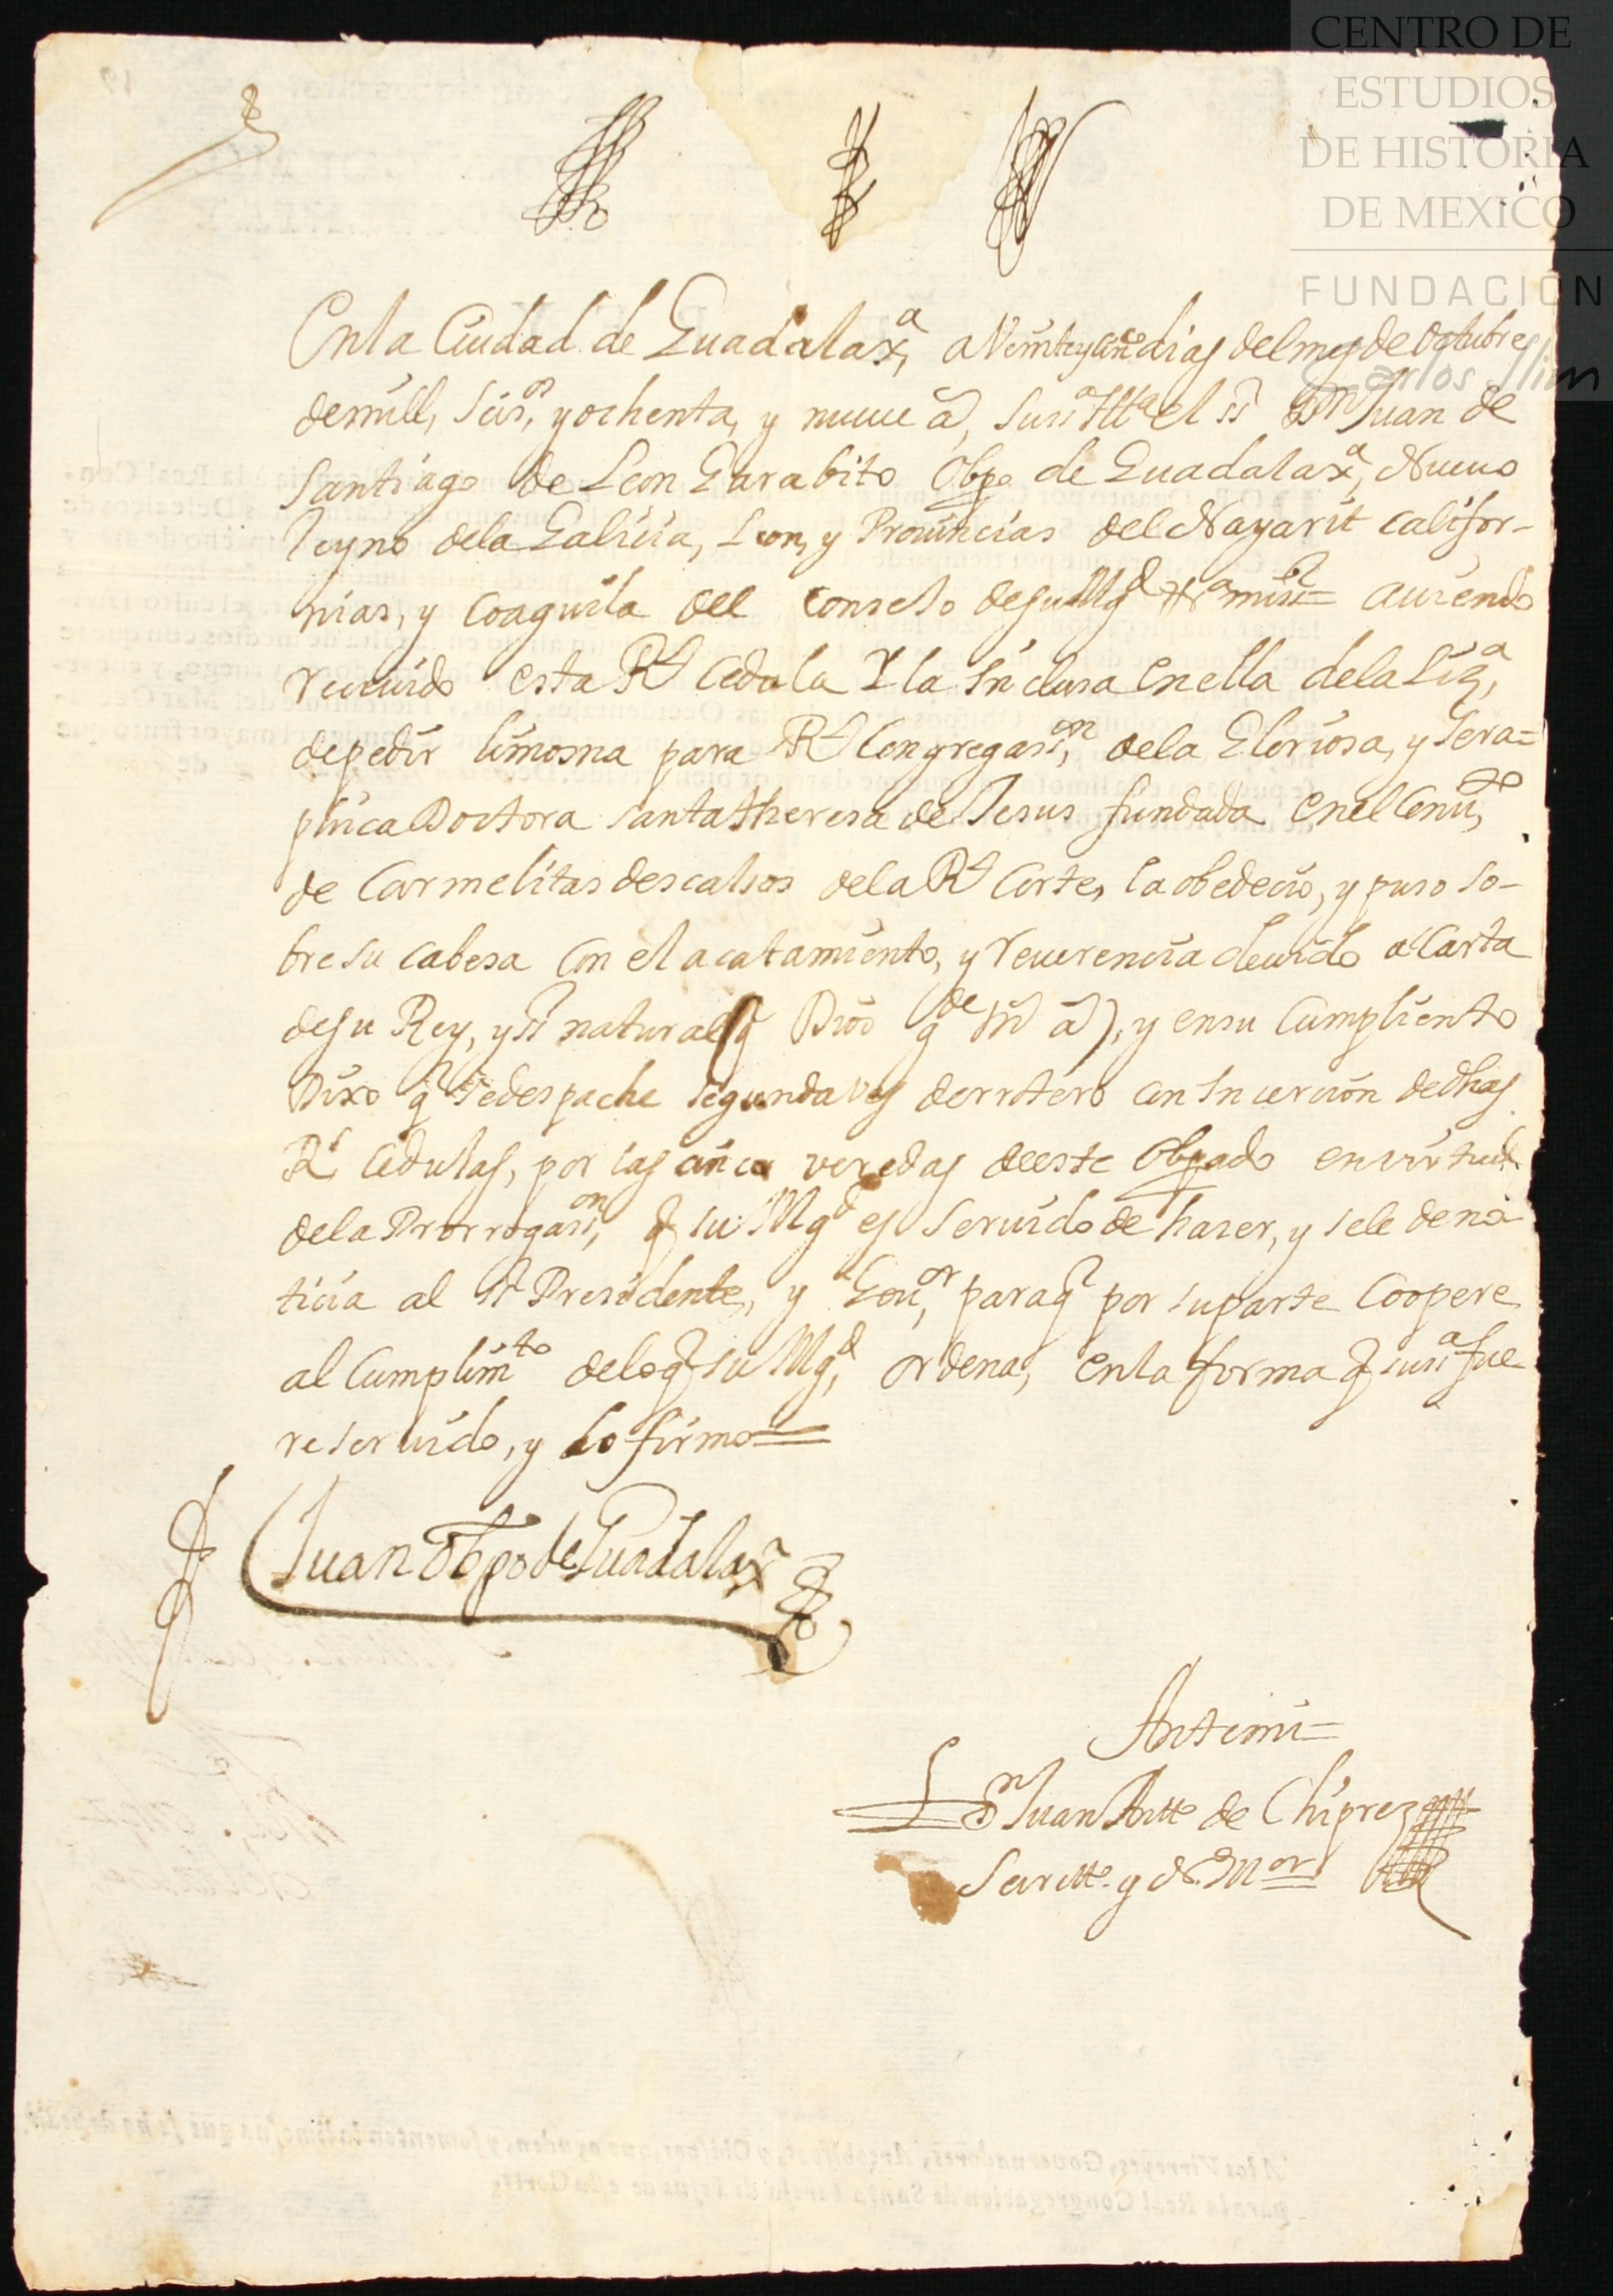 CENTRO DE
ESTUDIOS
DE HISTORIA
DE MEXICO
FUNDACIÓN
Carlos Slim
En la Ciudad de Guadalaxa, a Veinte y cinco dias del mes de Octubre
de mill, Seis, y ochenta, y nueue a, Su Sa Illa el Sr Dn Juan de
Santiago de Leon Garabito Obpo de Guadalaxa, Nueuo
Reyno de la Galicia, Leon, y Prouincias del Nayarit Califor-
nias, y Coaguila del Conseso de su Mgd aviendo
reciuido esta Rl Cedula Y la Inclusa en ella de la Liza,
de pedir limosna para Rl Congregasion, de la Gloriosa, y Sera=
phica Doctora Santa Theresa de Jesus fundada en el Conuto,
de Carmelitas descalsos de la Rl Corte, la obedecio, y puso so-
bre su cabesa con el acatamiento, y reuerencia deuido a Carta
de su Rey, y Sr natural (q Dios gde ms as), y en su Cumplimiento
Dixo q Se despache segunda ves derrotero con Incercion de dhas
Rs Cedulas, por las cinco veredas de este Obpado en virtud
de la Prorrogasion, q su Mgd es Seruido de haser, y se le de no
ticia al Sr Presidente, y Gouor, para q por su parte Coopere
al Cumplimto de lo q su Mgd, ordena, en la forma q su Sa fue
re seruido, y lo firmo =
Juan Obpo de Guadalaxa
Ante mi =
Dn Juan Antto de Chiprez
Secretto y Nor